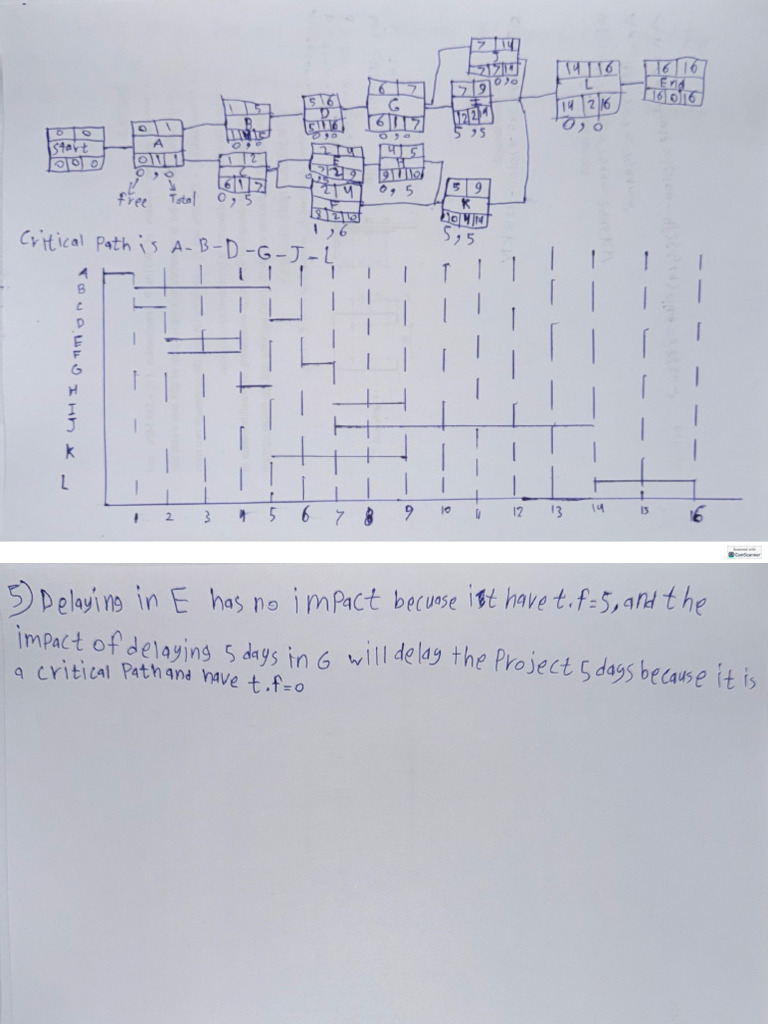 7 14
J
7 7 14
0,0
14 16
L
14 2 16
0,0
16 16
End
16 0 16
6 7
G
6 1 7
0,0
7 9
I
12 2 14
5,5
1 5
B
0,0
5 6
D
5 1 6
0,0
0 0
Start
0 0 0
0 1
A
0 1 1
0,0
free Total
1 2
C
6 1 7
0,5
2 4
E
7 2 9
0,5
4 5
H
9 1 10
0,5
2 4
F
8 2 10
1,6
5 9
K
10 4 14
5,5
Critical Path is A-B-D-G-J-L
A
B
C
D
E
F
G
H
I
J
K
L
1 2 3 4 5 6 7 8 9 10 11 12 13 14 15 16
Scanned with
CamScanner
5) Delaying in E has no impact becuase it have t.f=5, and the
impact of delaying 5 days in G will delay the Project 5 days because it is
a critical Path and have t.f=0